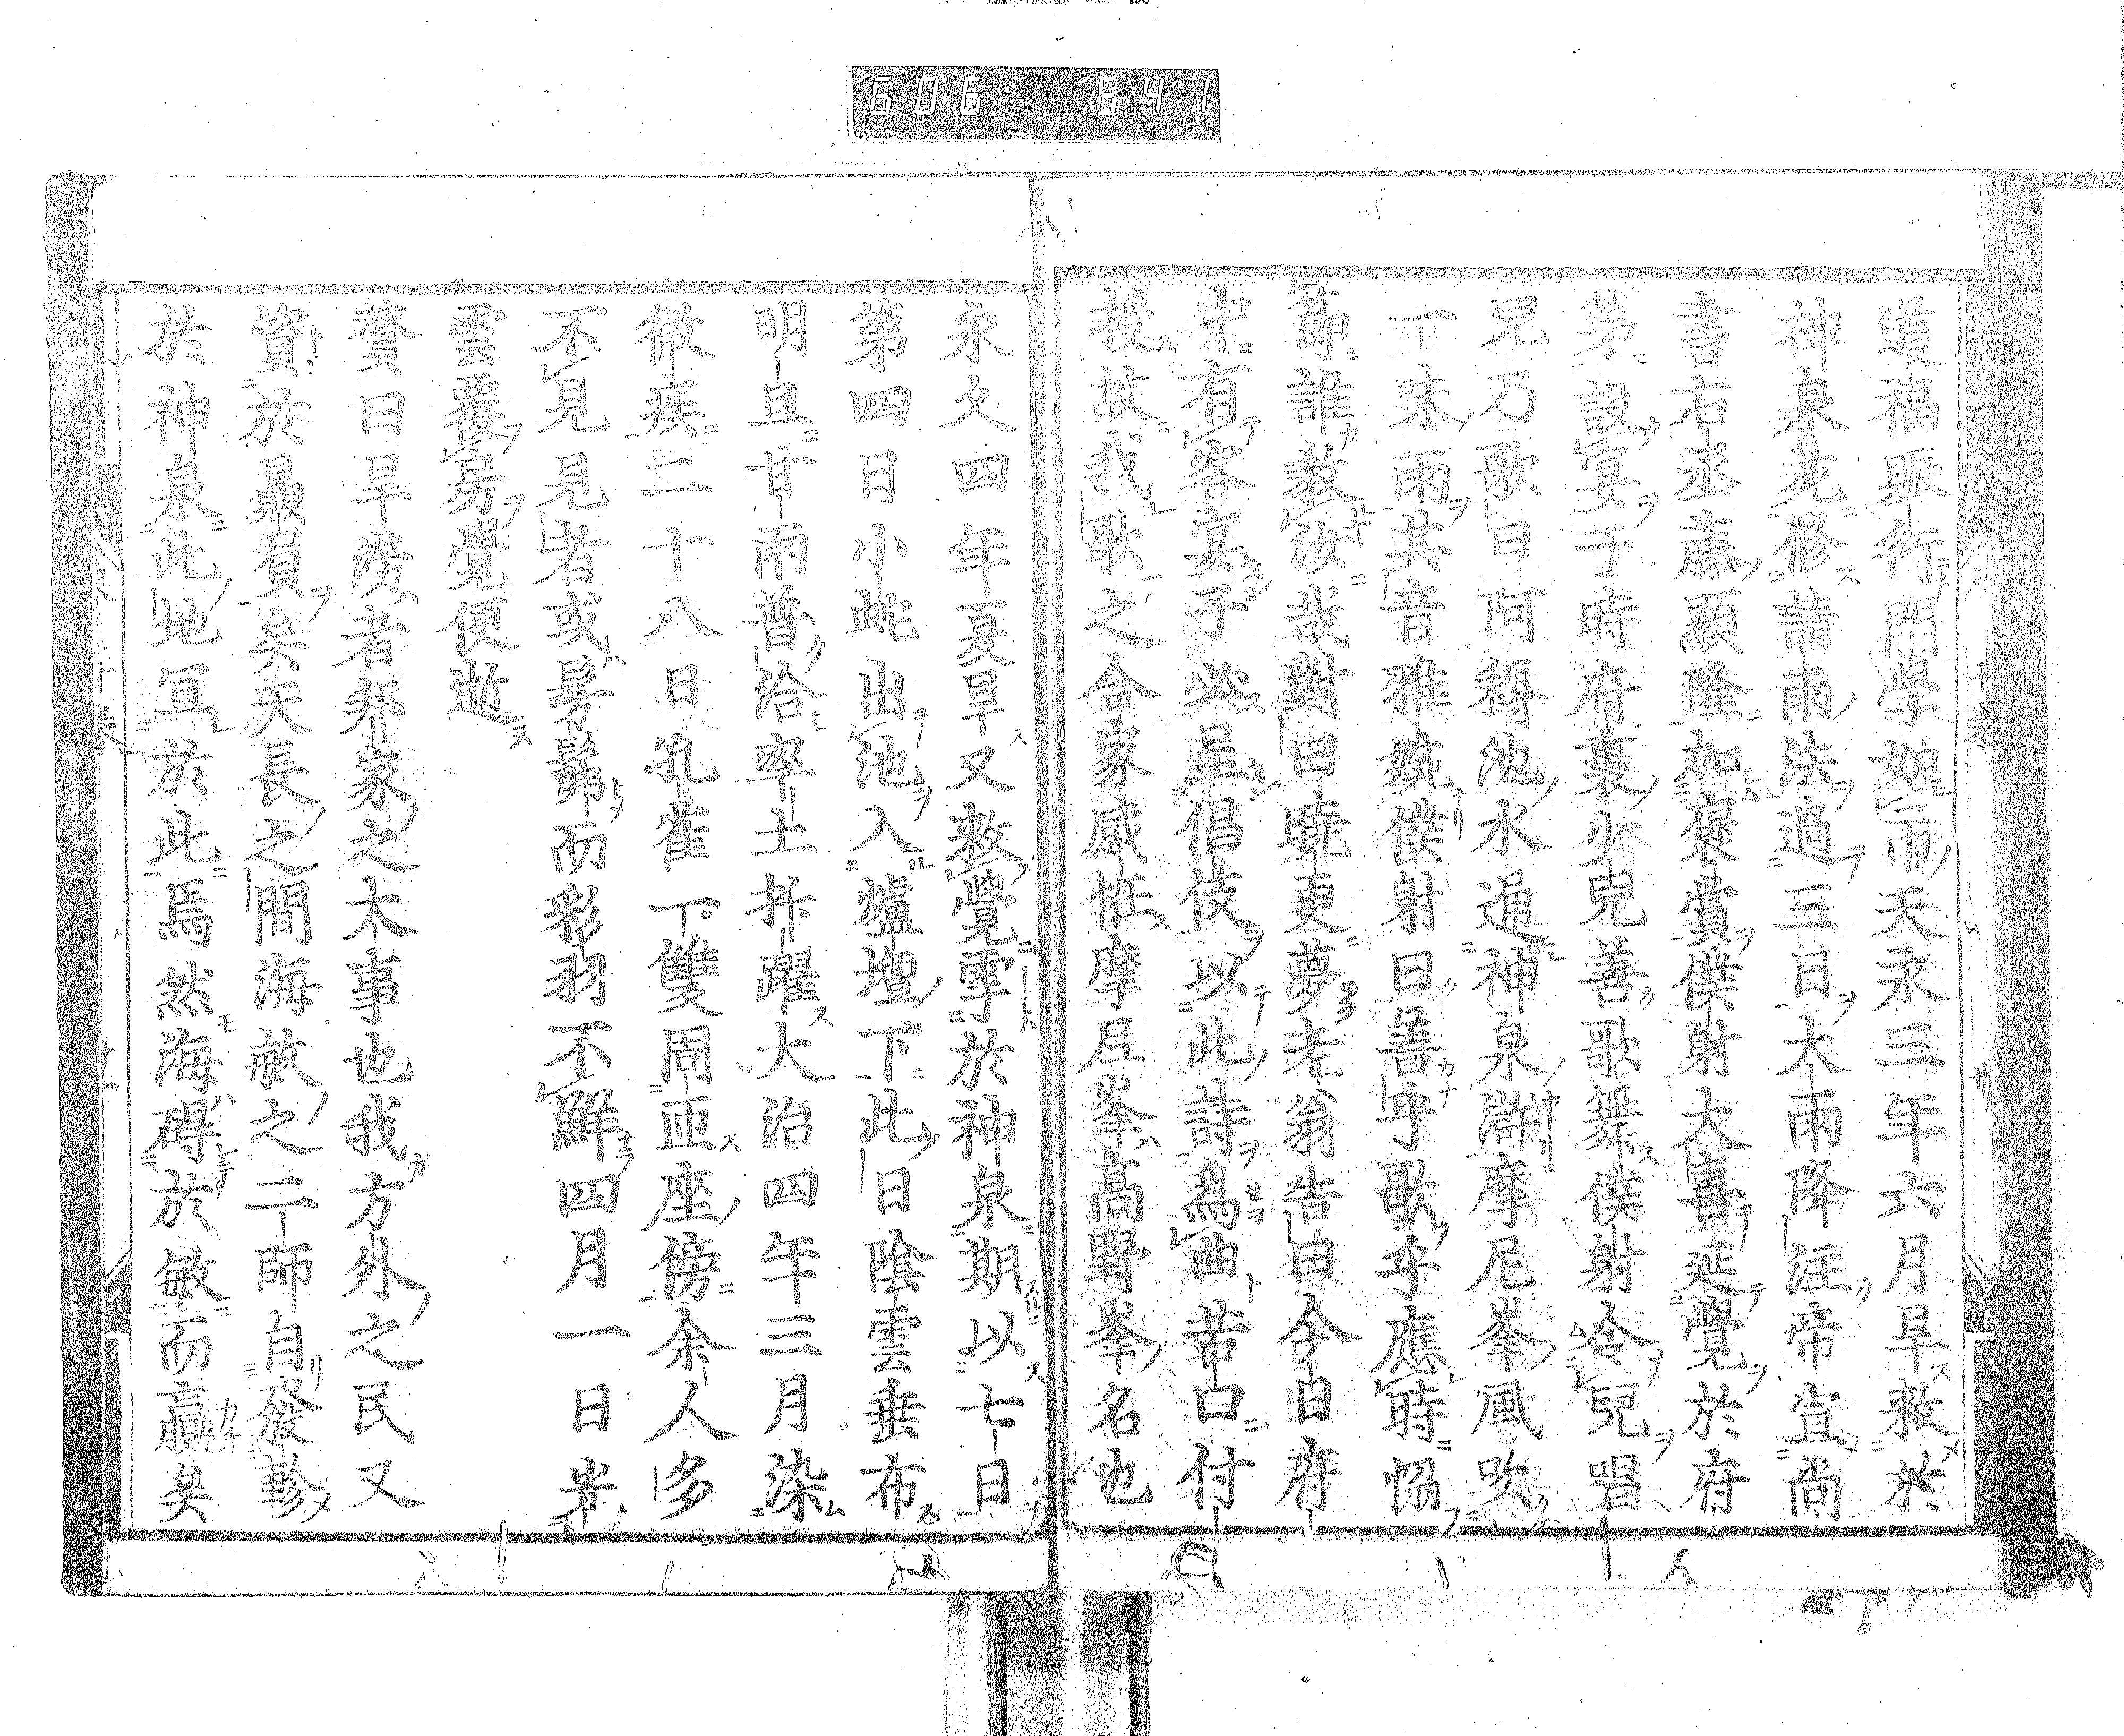 606 641
道福賑行開學如市天永三年六月旱敕於
神泉苑修請雨法過三日大雨降注帝宣尚
書右丞藤顯隆加褒賞僕射大喜延覺於府
第設宴于時府裏少兒善歌舞僕射令兒唱
兒乃歌曰阿耨池水通神泉澍摩尼峯風吹
一味雨其音雅婉僕射曰善乎歌乎應時惱
節誰敎汝哉對曰曉更夢老翁告曰今日府
中有客宴子必呈倡伎以此詩爲曲苦口付
授故我歌之令家感恠摩尼峯高野峯名也
永久四年夏旱又敕覺雩於神泉期以七日
第四日小蛇出池入爐壇下此日陰雲垂布
明旦甘雨普洽率土抃躍大治四年三月染
微疾二十八日孔雀一雙周匝座傍余人多
不見見者或髣髴而彩羽不鮮四月一日紫
雲覆房覺便逝
贊曰旱澇者邦家之大事也我方外之民又
資於贔屓矣天長之間海敏之二師自發軫
於神泉此地宜於此焉然海碍於敏而贏矣